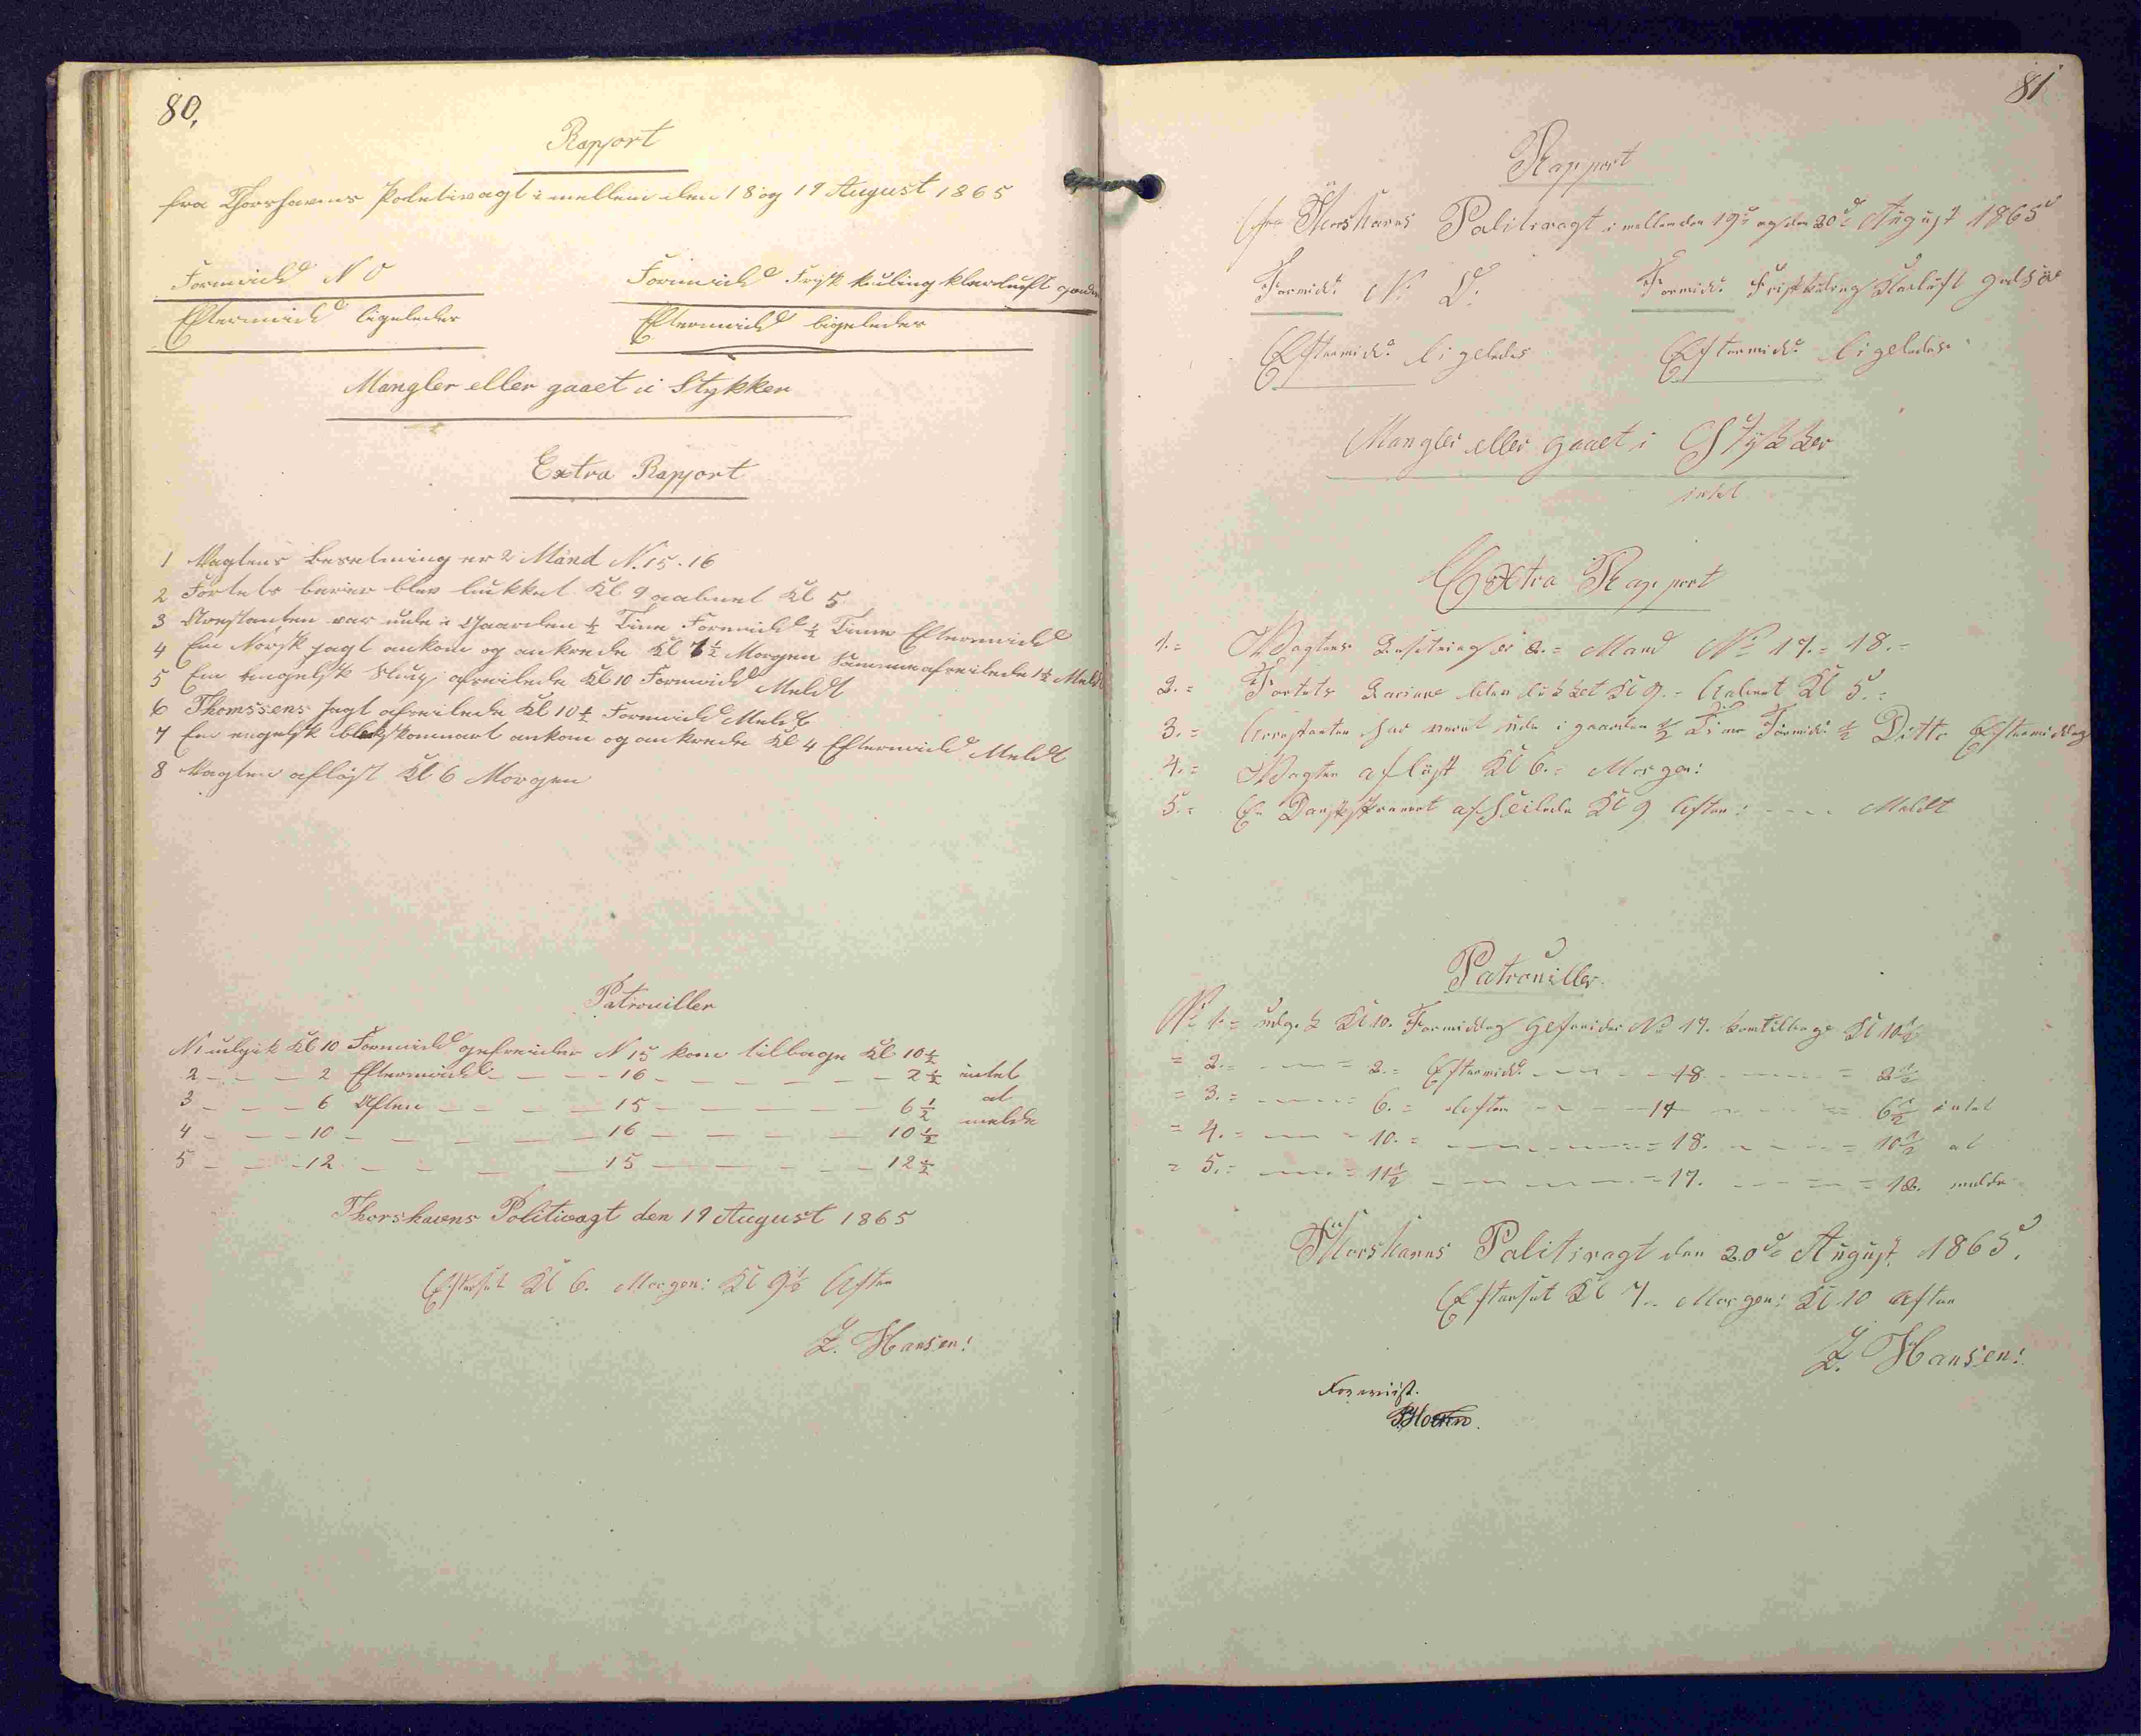 80,
Rapport
fra Thorshavns Politivagt i mellem den 18 og 19 August 1865
Formidd N O
Formidd Frisk kuling klarluft
Eftermidd ligeledes
Eftermidd ligeledes
Mangler eller gaaet i Stykker
Extra Rapport
1 Vagtens besetning er 2 Mand N. 15. 16
2 Fortets barier blev lukket Kl 9 aabnet Kl 5
3 Arestanten var ude i Gaarden ½ Time Formidd ½ Time Eftermidd
4 En Norsk jagt ankom og ankrede Kl 6½ Morgen Samme afseilede 1½ Meldt
5 En Engelsk Slup afseilede Kl 10 Formidd Meldt
6 Thomssens Jagt afseilede Kl 10½ Formidd Meldt
7 En engelsk skonnart ankom og ankrede Kl 4 Eftermidd Meldt
8 Vagten afløst Kl 6 Morgen
Patrouiller
N 1 udgik Kl 10 Formidd gefreider N 15 kom tilbage Kl 10½
2 - - - 2 Eftermidd - - - 16 - - - - - - 2½ intet
3 - - - 6 Aften - - - - 15 - - - - - - 6½ at
4 - - - 10 - - - - - 16 - - - - - 10½ melde
5 - - - 12 - - - - - 15 - - - - - 12½
Thorshavns Politivagt den 19 August 1865
Efterset Kl 6. Morgen: Kl 9½ Aften
Z. Hansen!
81
Rapport
fra Thorshavns Politivagt i mellem den 19de og den 20de August 1865
Formidd: N: O:
Formidd: Frisk kuling Klarluft god
Eftermidd: ligeledes
Eftermidd: ligeledes
Mangler eller gaaet i Stykker
intet
Extra Rapport
1.= Vagtens Besetning er 2.= Mand No 17.= 18.=
2.= Fortets Bariere blev lukket Kl 9.- Aabnet Kl 5.=
3.= Arrestanten har veret ude i gaarden ½ Time Formidd: ½ Ditto Eftermiddag
4.= Vagten afløst Kl 6.= Morgen:
5.= En Dansk afseilede Kl 9 Aften: - - - Meldt
Patrouiller.
No 1.= udgik Kl 10. Formiddag Gefreider No 17. kom tilbage Kl 10½
= 2.= - - = 2.= Eftermidd: - - - 18 - - - = 2½
= 3.= - - - 6.= Aften - - - 17 - - - = 6½ intet
= 4.= - - - 10.= - - - = 18. - - - = 10½ at
= 5.= - - - = 11½ - - - = 17. - - - = 12. melde
Thorshavns Politivagt den 20de August 1865.
Efterset Kl 7.- Morgen: Kl 10 Aften
Z. Hansen!